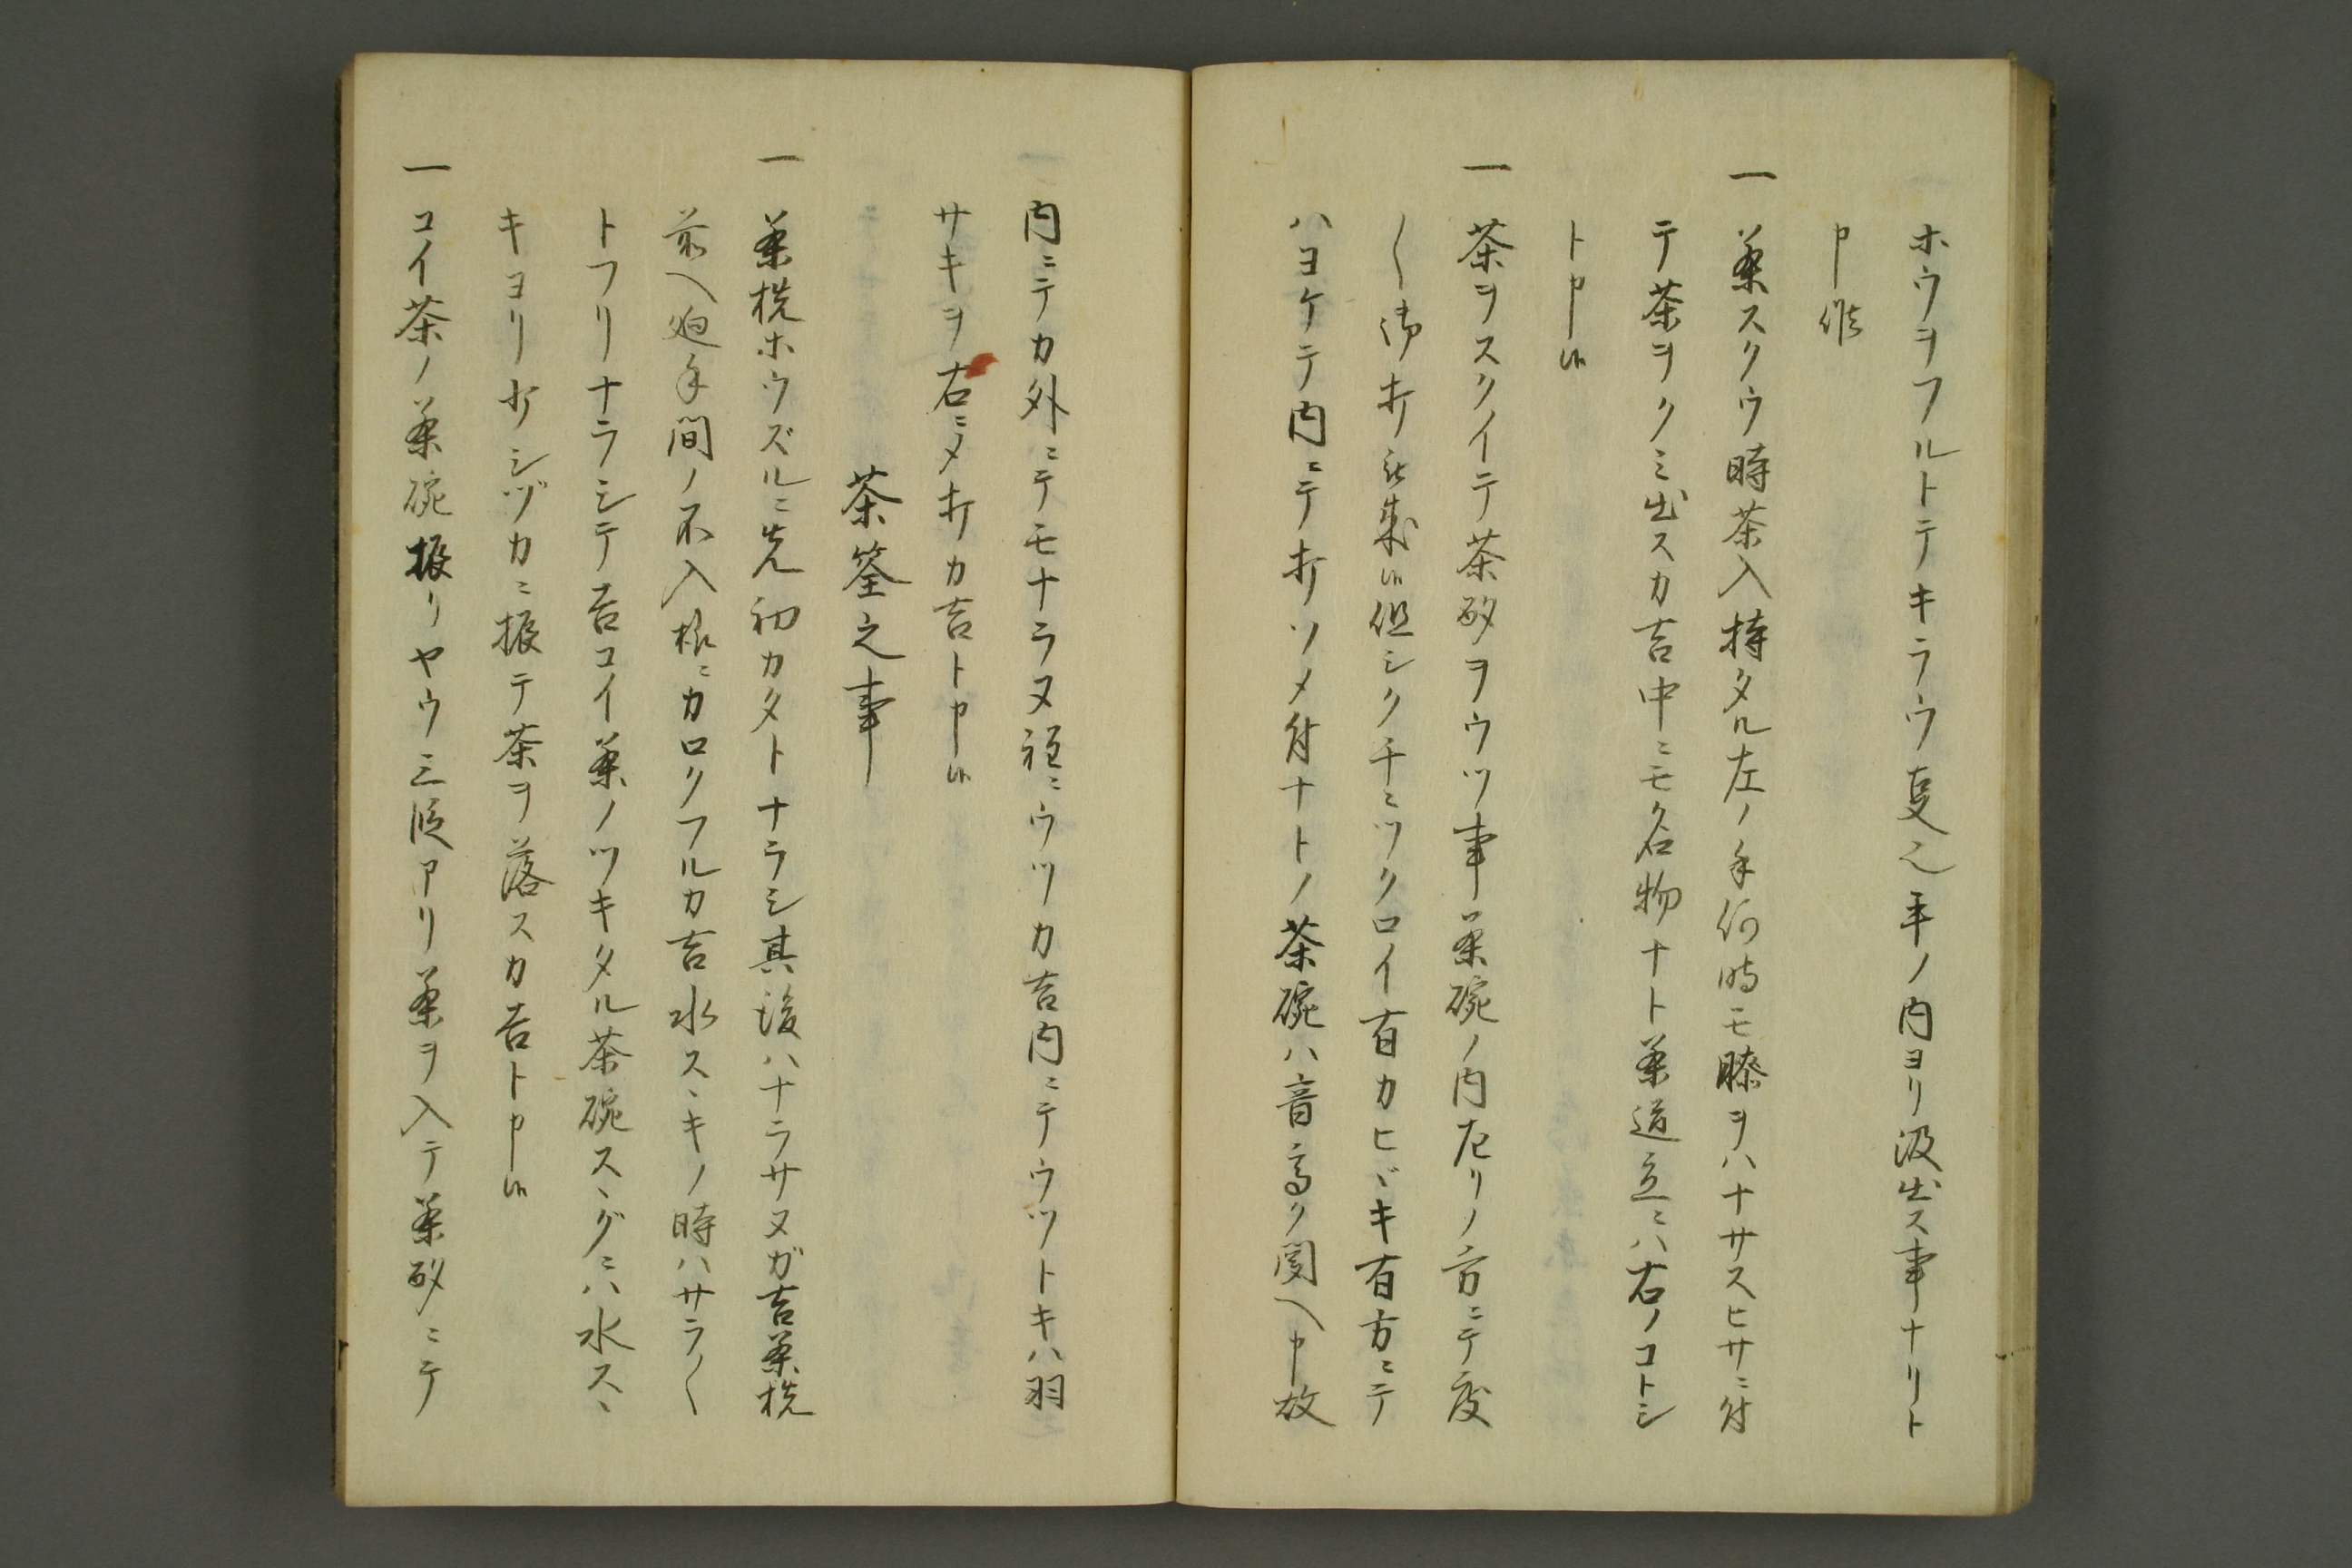 ホウヲフルトテキラウ夏之手ノ内ヨリ汲出ス事ナリト
申候
一 茶スクウ時茶入持タル左ノ手何時モ膝ヲハナサスヒサニ付
テ茶ヲクミ出スカ吉中ニモク名物ナト茶道立ニハ右ノコトシ
ト申候
一 茶ヲスクイテ茶杓ヲウツ事茶碗ノ内左リノ方ニテ度
〱御打被成候但シク干ニツクロイ有カヒヾキ有方ニテ
ハヨケテ内ニテ打ソメ付ナトノ茶碗ハ音高ク聞ヘ申故
内ニテカ外ニテモナラヌ程ニウツカ吉内ニテウツトキハ羽
サキヲ右ニメ打カ吉ト申候
茶筌之事
一 茶筅ホウズルニ先初カタトナラシ其後ハナラサヌガ吉茶筅
前ヘ廻手間ノ不入様ニカロクフルカ吉水スヽキノ時ハサラ〱
トフリナラシテ吉コイ茶ノツキタル茶碗スヽグニハ水スヽ
キヨリ少シヅカニ振テ茶ヲ落スカ吉ト申候
一 コイ茶ノ茶碗振リヤウ三段アリ茶ヲ入テ茶杓ニテ